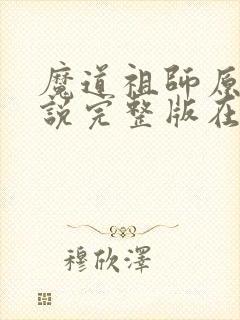 魔道祖師原
說完整版在
穆欣澤